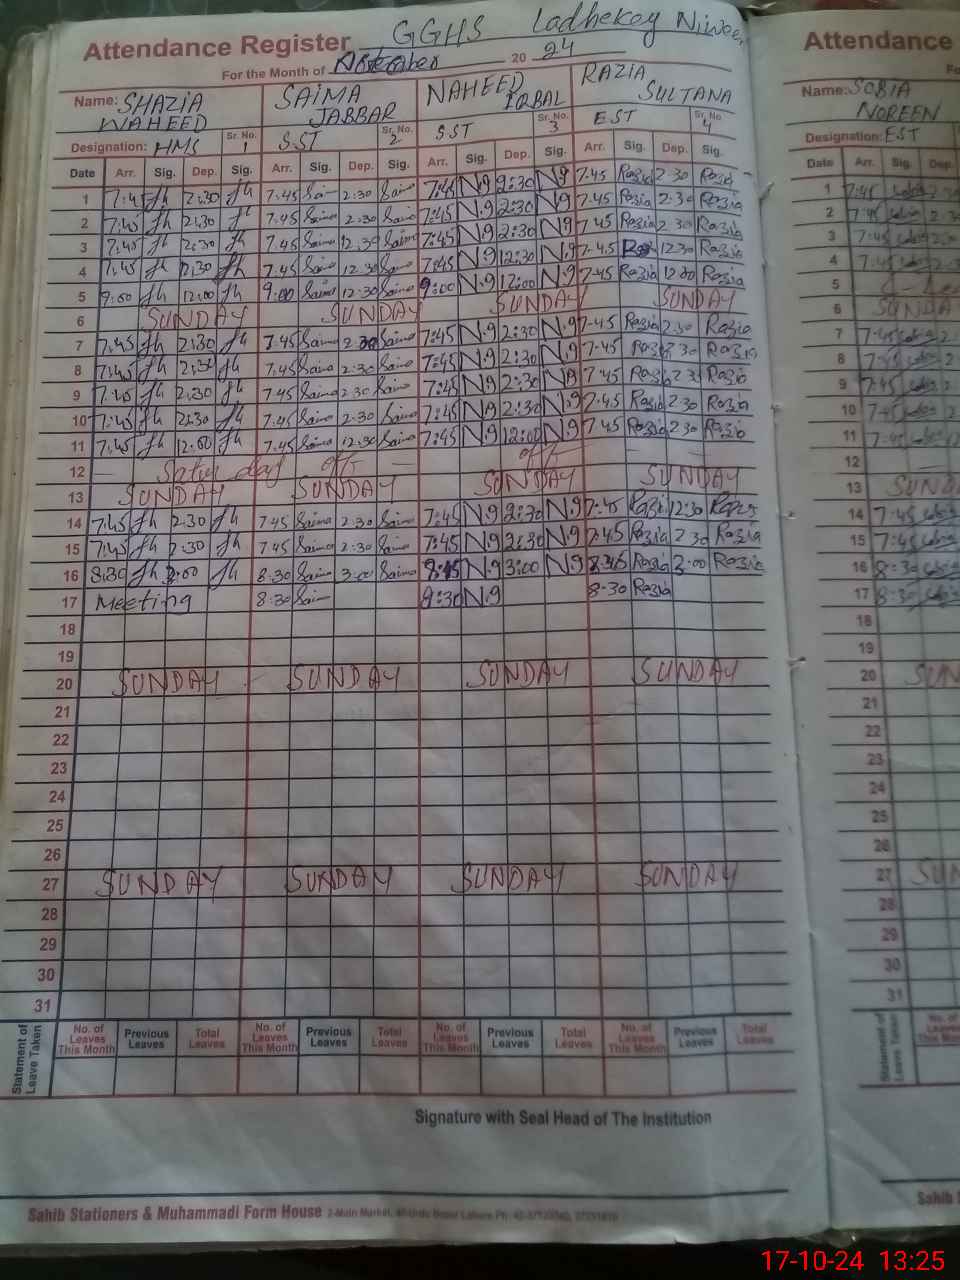 GGHS Ladhekey Niwee
Attendance Register
For the Month of October 20 24
Name: SHAZIA WAHEED SAIMA JABBAR NAHEED IQBAL RAZIA SULTANA
Designation: HMS Sr. No. 1 SST Sr. No. 2 SST Sr. No. 3 EST Sr. No. 4
Date Arr. Sig. Dep. Sig. Arr. Sig. Dep. Sig. Arr. Sig. Dep. Sig. Arr. Sig. Dep. Sig.
1 7:45 Sh 2:30 Sh 7:45 Saima 2:30 Saima 7:45 N.9 2:30 N.9 7-45 Razia 2 30 Razia
2 7:45 Sh 2:30 Sh 7.45 Saima 2.30 Saima 7:45 N.9 2:30 N.9 7-45 Razia 2.30 Razia
3 7:45 Sh 2:30 Sh 7.45 Saima 12.30 Saima 7:45 N.9 2:30 N.9 7 45 Razia 2 30 Razia
4 7:45 Sh 12:30 Sh 7.45 Saima 12.30 Saima 7:45 N.9 12:30 N.9 7-45 12 30 Razia
5 9:00 Sh 12:00 Sh 9:00 Saima 12.30 Saima 9:00 N.9 12:00 N.9 7-45 Razia 12 00 Razia
6 SUNDAY SUNDAY SUNDAY SUNDAY
7 7:45 Sh 2:30 Sh 7.45 Saima 2.30 Saima 7:45 N.9 2:30 N.9 7-45 Razia 2 30 Razia
8 7:45 Sh 2:30 Sh 7.45 Saima 2.30 Saima 7:45 N.9 2:30 N.9 7-45 Razia 2 30 Razia
9 7:45 Sh 2:30 Sh 7.45 Saima 2.30 Saima 7:45 N.9 2:30 N.9 7 45 Razia 2 3 Razia
10 7:45 Sh 2:30 Sh 7.45 Saima 2.30 Saima 7:45 N.9 2:30 N.9 7-45 Razia 2.30 Razia
11 7:45 Sh 12:00 Sh 7.45 Saima 12.30 Saima 7:45 N.9 12:00 N.9 7 45 Razia 2 30 Razia
12 – Saturday off – off – –
13 SUNDAY SUNDAY SUNDAY SUNDAY
14 7:45 Sh 2:30 Sh 7.45 Saima 2.30 Saima 7:45 N.9 2:30 N.9 7-45 Razia 12:30 Razia
15 7:45 Sh 2:30 Sh 7.45 Saima 2:30 Saima 7:45 N.9 2:30 N.9 7-45 Razia 2 30 Razia
16 8:30 Sh 3:00 Sh 8.30 Saima 3:00 Saima 8:45 N.9 3:00 N.9 Razia 3:00 Razia
17 Meeting 8:30 Saima 8:30 N.9 8-30 Razia
18
19
20 SUNDAY SUNDAY SUNDAY SUNDAY
21
22
23
24
25
26
27 SUNDAY SUNDAY SUNDAY SUNDAY
28
29
30
31
Statement of Leave Taken
No. of Leaves This Month Previous Leaves Total Leaves No. of Leaves This Month Previous Leaves Total Leaves No. of Leaves This Month Previous Leaves Total Leaves No. of Leaves This Month Previous Leaves Total Leaves
Signature with Seal Head of The Institution
Sahib Stationers & Muhammadi Form House
Attendance
Fo
Name: SOBIA NOREEN
Designation: EST
Date Arr. Sig. Dep.
1 7:45
2 7:45
3 7:45
4 7:45
5
6 SUNDA
7 7:45
8 7:45
9 7:45
10 7:45
11 7:45
12
13 SUNDA
14 7:45
15 7:45
16 8:30
17 8:30
18
19
20 SUN
21
22
23
24
25
26
27 SUN
28
29
30
31
Statement of Leave Taken
No. of Leaves This Month
Sahib S
17-10-24 13:25